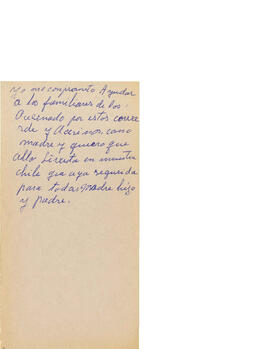 yo me conpromto Ayudar
a los familiares de los
Qusenado por estos couver
rde y Acesinos, como
madre y quiero que
Alla Livesta en nuestra
chile gia aya seguridad
para todas Madre hijo
y padre.